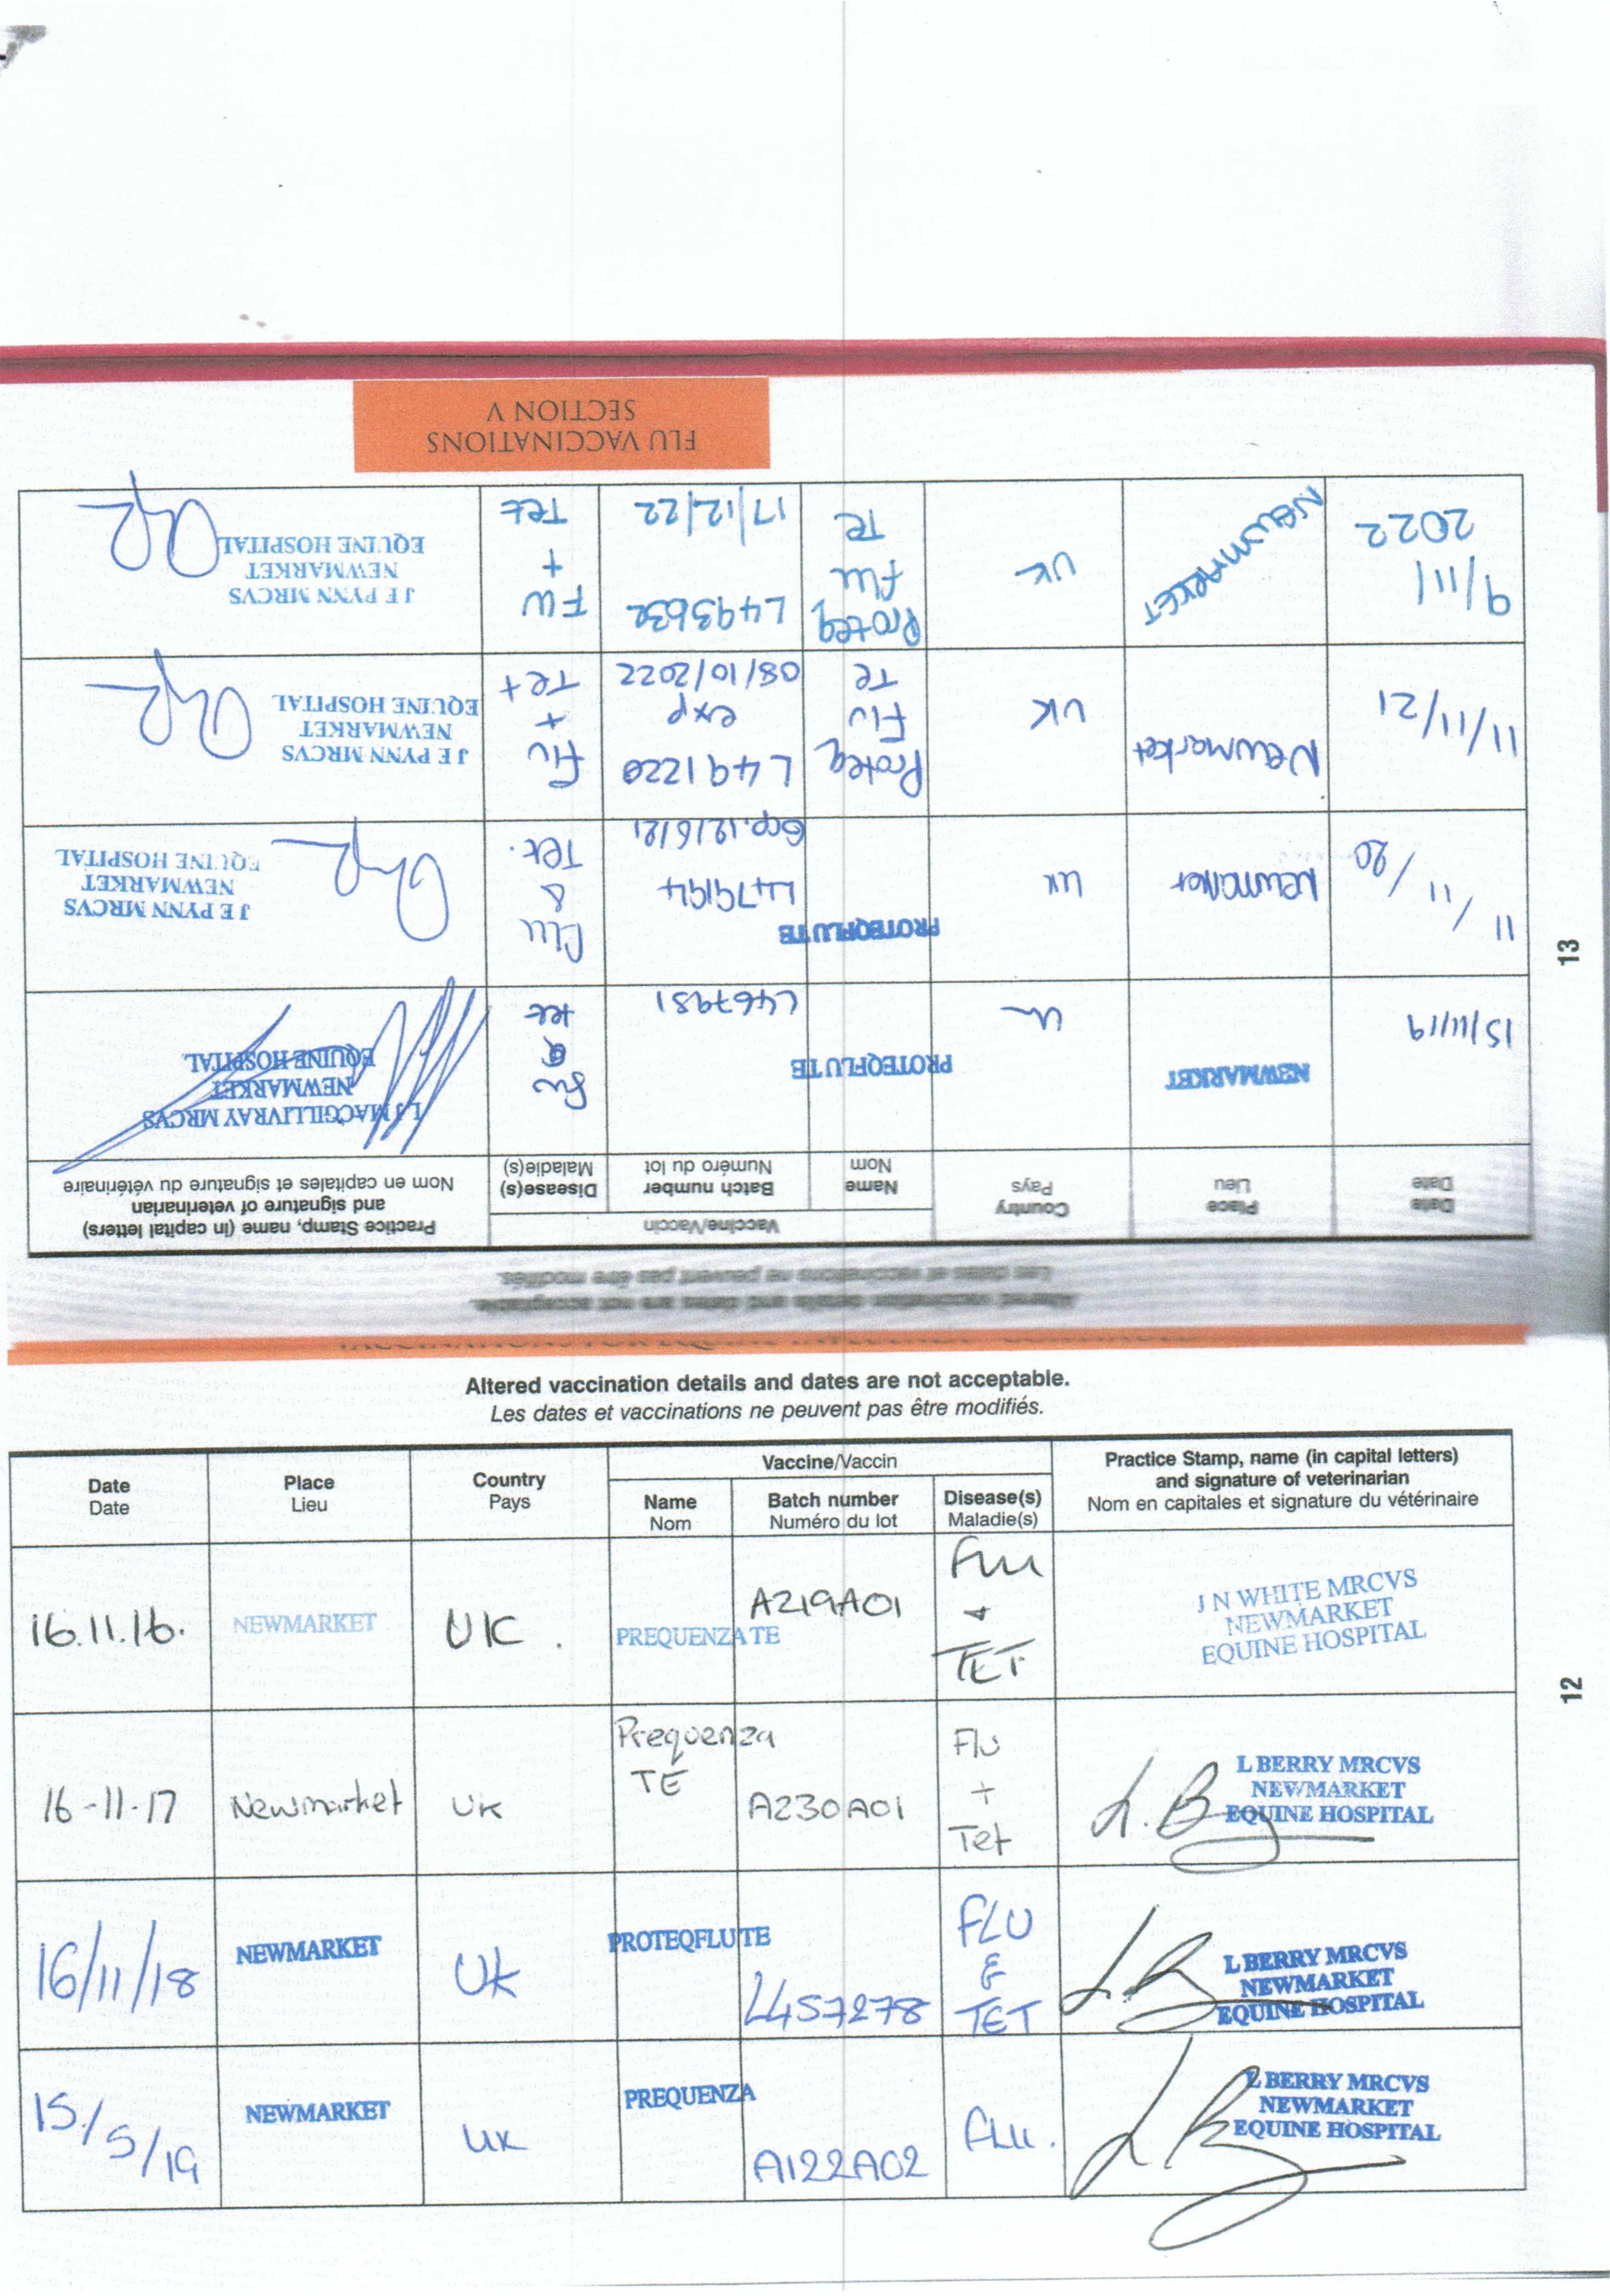 Altered vaccination details and dates are not acceptable.
Les dates et vaccinations ne peuvent pas être modifiés.
Date
Date
Place
Lieu
Country
Pays
Vaccine/Vaccin
Name
Nom
Batch number
Numéro du lot
Disease(s)
Maladie(s)
Practice Stamp, name (in capital letters)
and signature of veterinarian
Nom en capitales et signature du vétérinaire
16.11.16.
NEWMARKET
UK.
PREQUENZA TE
A219A01
Flu
+
TET
J N WHITE MRCVS
NEWMARKET
EQUINE HOSPITAL
16-11-17
Newmarket
UK
Prequenza
TE
A230A01
Flu
+
Tet
L BERRY MRCVS
NEWMARKET
EQUINE HOSPITAL
16/11/18
NEWMARKET
UK
PROTEQFLUTE
L457278
FLU
&
TET
L BERRY MRCVS
NEWMARKET
EQUINE HOSPITAL
15/5/19
NEWMARKET
UK
PREQUENZA
A122A02
FLU.
L BERRY MRCVS
NEWMARKET
EQUINE HOSPITAL
12
Altered vaccination details and dates are not acceptable.
Les dates et vaccinations ne peuvent pas être modifiés.
Date
Date
Place
Lieu
Country
Pays
Vaccine/Vaccin
Name
Nom
Batch number
Numéro du lot
Disease(s)
Maladie(s)
Practice Stamp, name (in capital letters)
and signature of veterinarian
Nom en capitales et signature du vétérinaire
15/11/19
NEWMARKET
PROTEQFLUTE
L467951
Flu
&
tet
L J MACGILLIVRAY MRCVS
NEWMARKET
EQUINE HOSPITAL
11/11/20
Newmarket
UK
PROTEQFLUTE
L479194
Exp. 12/6/21
Flu
&
Tet.
J E PYNN MRCVS
NEWMARKET
EQUINE HOSPITAL
11/11/21
Newmarket
UK
Proteq
Flu
Te
L491220
exp
08/10/2022
Flu
+
Tet
J E PYNN MRCVS
NEWMARKET
EQUINE HOSPITAL
9/11/
2022
NEWMARKET
UK
Proteq
Flu
Te
L493632
17/12/22
Flu
+
Tet
J E PYNN MRCVS
NEWMARKET
EQUINE HOSPITAL
FLU VACCINATIONS
SECTION V
13